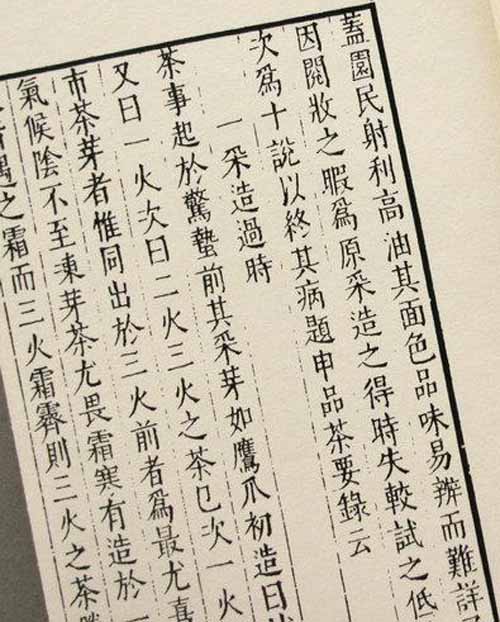 蓋園民射利高油其面色品味易辨而難詳
因閱收之暇為原采造之得時失較試之低
次為十說以終其病題曰品茶要錄云
一采造過時
茶事起於驚蟄前其采芽如鷹爪初造曰
又曰一火次曰二火二火之茶已次一火
市茶芽者惟同出於三火前者為最尤喜
氣候陰不至凍芽茶尤畏霜寒有造於一
之霜而三火霜霽則三火之茶